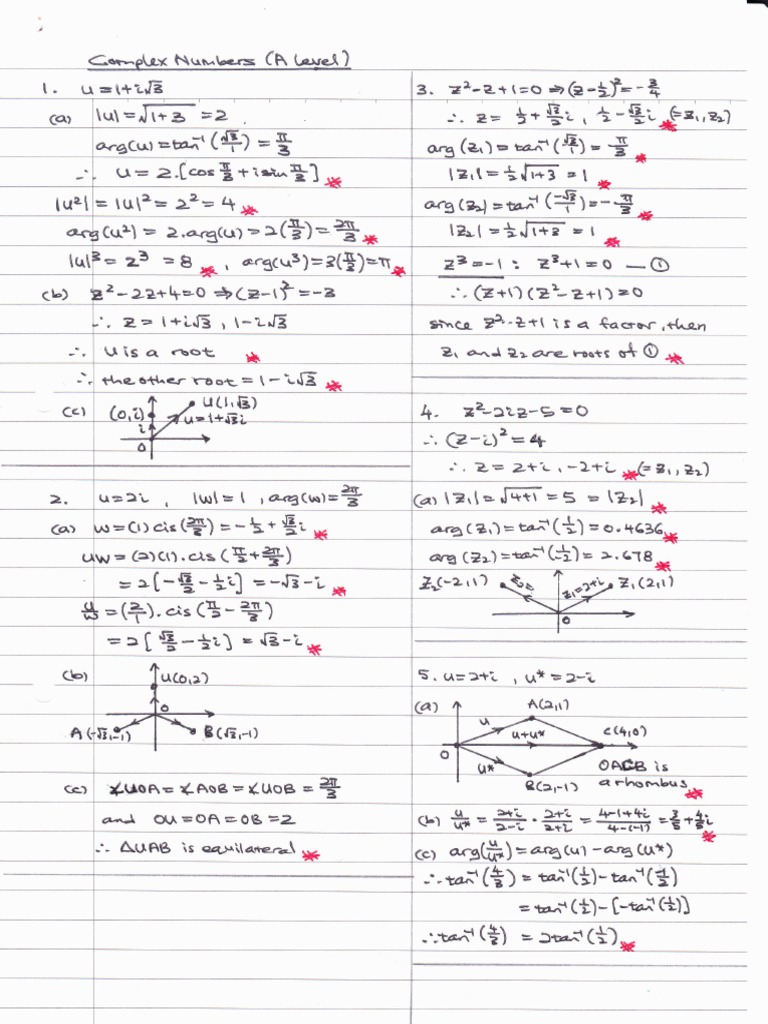 Complex Numbers (A Level)
1. u = 1+i√3
(a) |u| = √(1+3) = 2
arg(u) = tan⁻¹(√3/1) = π/3
∴ u = 2.[cos π/3 + i sin π/3] *
|u²| = |u|² = 2² = 4 *
arg(u²) = 2.arg(u) = 2(π/3) = 2π/3 *
|u|³ = 2³ = 8 * , arg(u³) = 3(π/3) = π *
(b) z²-2z+4=0 ⇒ (z-1)² = -3
∴ z = 1+i√3 , 1-i√3
∴ u is a root *
∴ the other root = 1-i√3 *
(c) (0,i) U(1,√3)
i u=1+√3i
O
2. u=2i , |w|=1 , arg(w)=2π/3
(a) w=(1)cis(2π/3) = -1/2 + √3/2 i *
uw = (2)(1).cis(π/2 + 2π/3)
= 2[-√3/2 - 1/2 i] = -√3-i *
u/w = (2/1).cis(π/2 - 2π/3)
= 2[√3/2 - 1/2 i] = √3-i *
(b) U(0,2)
O
A(-√3,-1) B(√3,-1)
(c) ∠UOA = ∠AOB = ∠UOB = 2π/3
and OU=OA=OB=2
∴ ΔUAB is equilateral *
3. z²-z+1=0 ⇒ (z-1/2)² = -3/4
∴ z = 1/2 + √3/2 i , 1/2 - √3/2 i * (=z₁,z₂)
arg(z₁) = tan⁻¹(√3/1) = π/3 *
|z₁| = 1/2 √(1+3) = 1 *
arg(z₂) = tan⁻¹(-√3/1) = -π/3 *
|z₂| = 1/2 √(1+3) = 1 *
z³=-1 : z³+1=0 — ①
∴ (z+1)(z²-z+1)=0
since z²-z+1 is a factor, then
z₁ and z₂ are roots of ① *
4. z²-2iz-5=0
∴ (z-i)² = 4
∴ z = 2+i, -2+i * (=z₁,z₂)
(a) |z₁| = √(4+1) = 5 = |z₂| *
arg(z₁) = tan⁻¹(1/2) = 0.4636 *
arg(z₂) = tan⁻¹(-1/2) = 2.678 *
Z₂(-2,1) z₁=2+i Z₁(2,1)
O
5. u=2+i , u*=2-i
(a) A(2,1)
u u+u* C(4,0)
O u* OACB is
a rhombus *
B(2,-1)
(b) u/u* = (2+i)/(2-i) . (2+i)/(2+i) = (4-1+4i)/(4-(-1)) = 3/5 + 4/5 i *
(c) arg(u/u*) = arg(u) - arg(u*)
∴ tan⁻¹(4/3) = tan⁻¹(1/2) - tan⁻¹(-1/2)
= tan⁻¹(1/2) - [-tan⁻¹(1/2)]
∴ tan⁻¹(4/3) = 2tan⁻¹(1/2) *